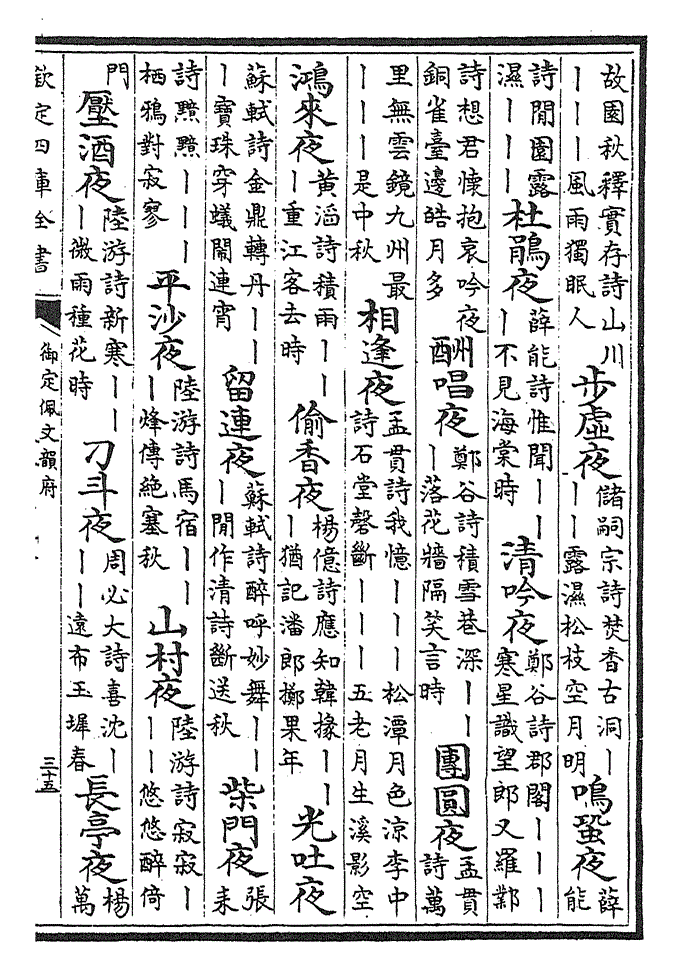 故園秋釋實存詩山川丨丨丨風雨獨眠人步虛夜儲嗣宗詩焚香古洞丨丨丨露濕松枝空月明鳴蛩夜薛能
詩閒園露濕丨丨丨杜鵑夜薛能詩惟聞丨丨丨不見海棠時清吟夜鄭谷詩郡閣丨丨丨寒星識望郎又羅鄴
詩想君懷抱哀吟夜銅雀臺邊皓月多酬唱夜鄭谷詩積雪巷深丨丨丨落花牆隔笑言時團圓夜孟貫詩萬
里無雲鏡九州最丨丨丨是中秋相逢夜孟貫詩我憶丨丨丨松潭月色涼李中詩石堂磬斷丨丨丨五老月生溪影空
鴻來夜黃滔詩積雨丨丨丨重江客去時偷香夜楊億詩應知韓掾丨丨丨猶記潘郎擲果年光吐夜
蘇軾詩金鼎轉丹丨丨丨寶珠穿蟻鬧連宵留連夜蘇軾詩醉呼妙舞丨丨丨閒作清詩斷送秋柴門夜張耒
詩黯黯丨丨丨栖鴉對寂寥平沙夜陸游詩馬宿丨丨丨烽傳絶塞秋山村夜陸游詩寂寂丨丨丨悠悠醉倚
門壓酒夜陸游詩新寒丨丨丨微雨種花時刁斗夜周必大詩喜沈丨丨丨遠布玉墀春長亭夜楊萬
欽定四庫全書
御定佩文韻府
三十五